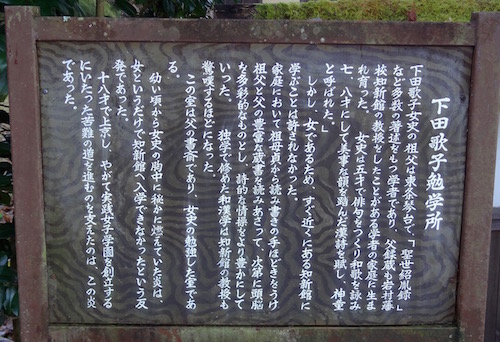 下田歌子勉学所
下田歌子女史の祖父は東条琴台で、「聖世紹胤録」
など多数の著述をもつ学者であり、父鋠蔵も岩村藩
校知新館の教授をしたことがある学者の家庭に生ま
れ育った。 女史は五才で俳句をつくり和歌を詠み
七、八才にして美事な韻を踏んだ漢詩を賦し、神童
と呼ばれた。
しかし、女であるため、すぐ近くにある知新館に
学ぶことは許されなかった。
家庭において、祖母貞から読み書きの手ほどきをうけ
祖父と父の豊富な蔵書を読みあさって、次第に頭脳
を多彩的なものとし、詩的な情操をより豊かにして
いった。 独学で修めた和漢学は知新館の教授も
驚嘆するほどになった。
この室は父の書斎であり、女史の勉強した室であ
る。
幼い頃から女史の胸中に秘かに燃えていた炎は、
女というだけで知新館へ入学できなかったという反
発であった。
十八才で上京し、やがて実践女子学園を創立する
にいたった苦難の道を突き進むのを支えたのは、この炎
であった。